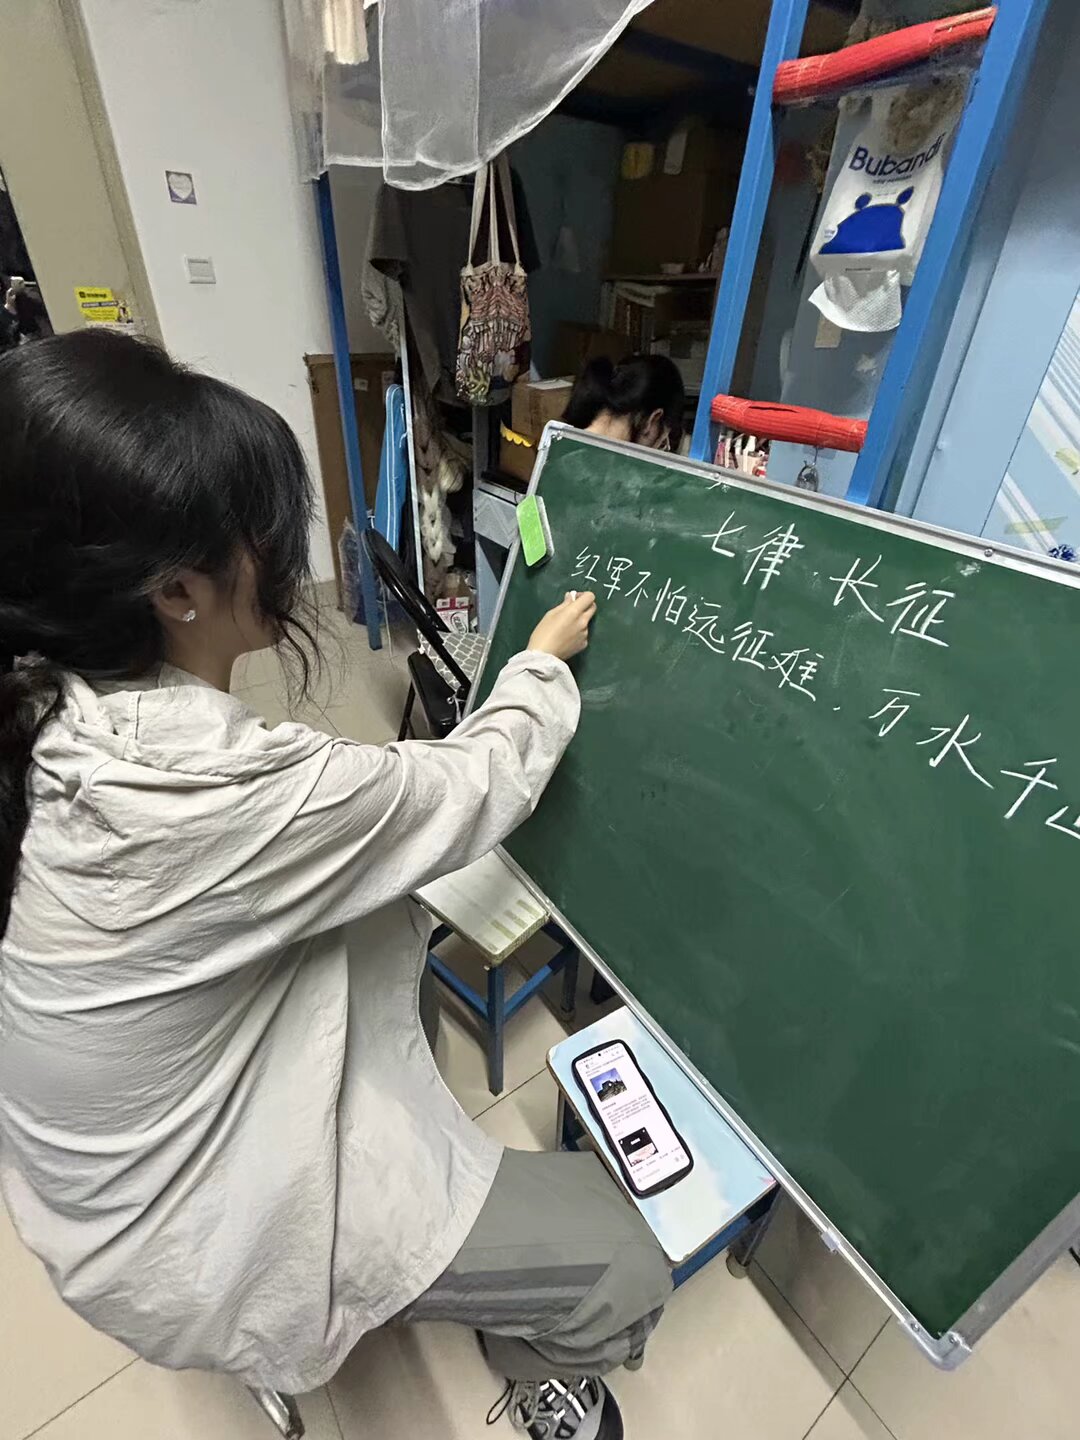 Bubandi
七律·长征
红军不怕远征难，万水千山